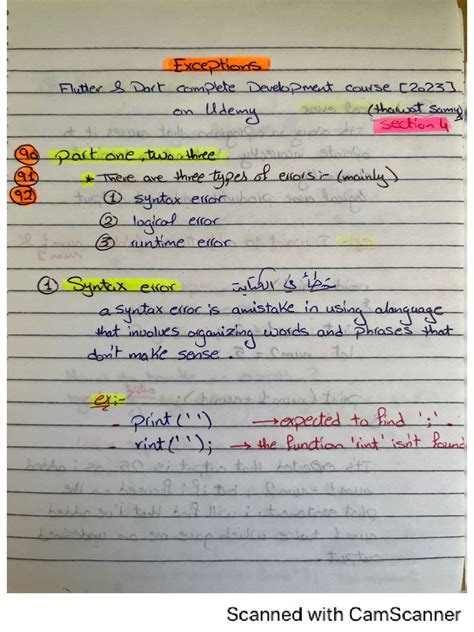 Exceptions
Flutter & Dart complete Development course [2023]
on Udemy (tharwat samy)
section 4
90 part one, two, three
91 * There are three types of errors:- (mainly)
92 ① syntax error
② logical error
③ runtime error
① Syntax error خطأ في الكتابة
a syntax error is amistake in using alanguage
that involves organizing words and phrases that
don't make sense.
ex:-
- print('') → expected to find ';'.
- rint(''); → the function 'rint' isn't found
Scanned with CamScanner